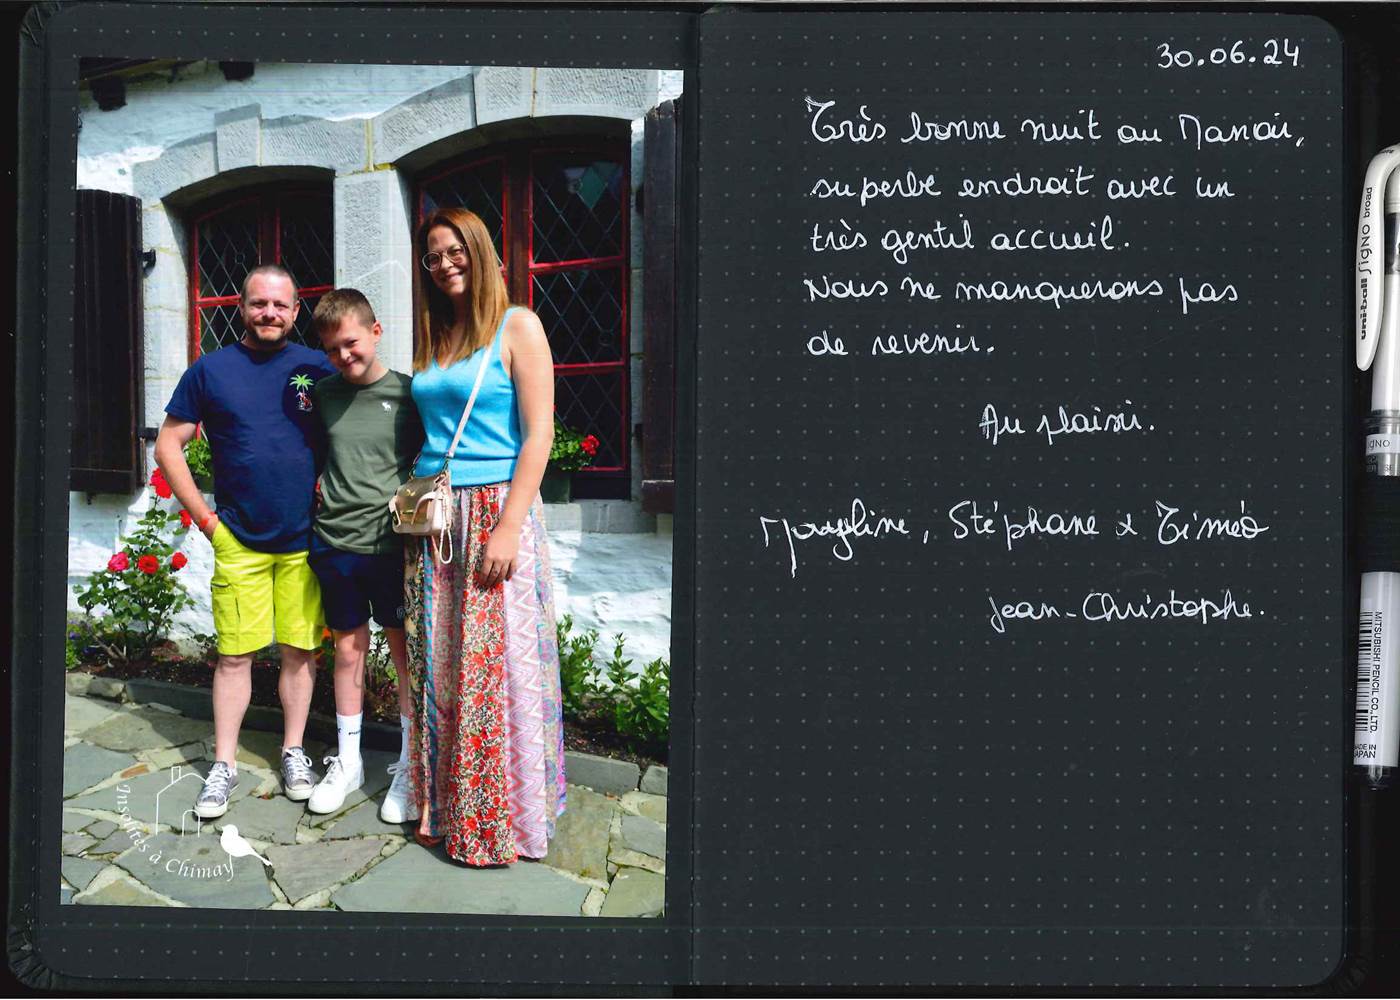 30.06.24
Très bonne nuit au Manoir,
superbe endroit avec un
très gentil accueil.
Nous ne manquerons pas
de revenir.
Au plaisir.
, Stéphane & Timéo
Jean-Christophe.
Insolites à Chimay
uni-ball SIGNO broad
MITSUBISHI PENCIL CO., LTD.
MADE IN
JAPAN